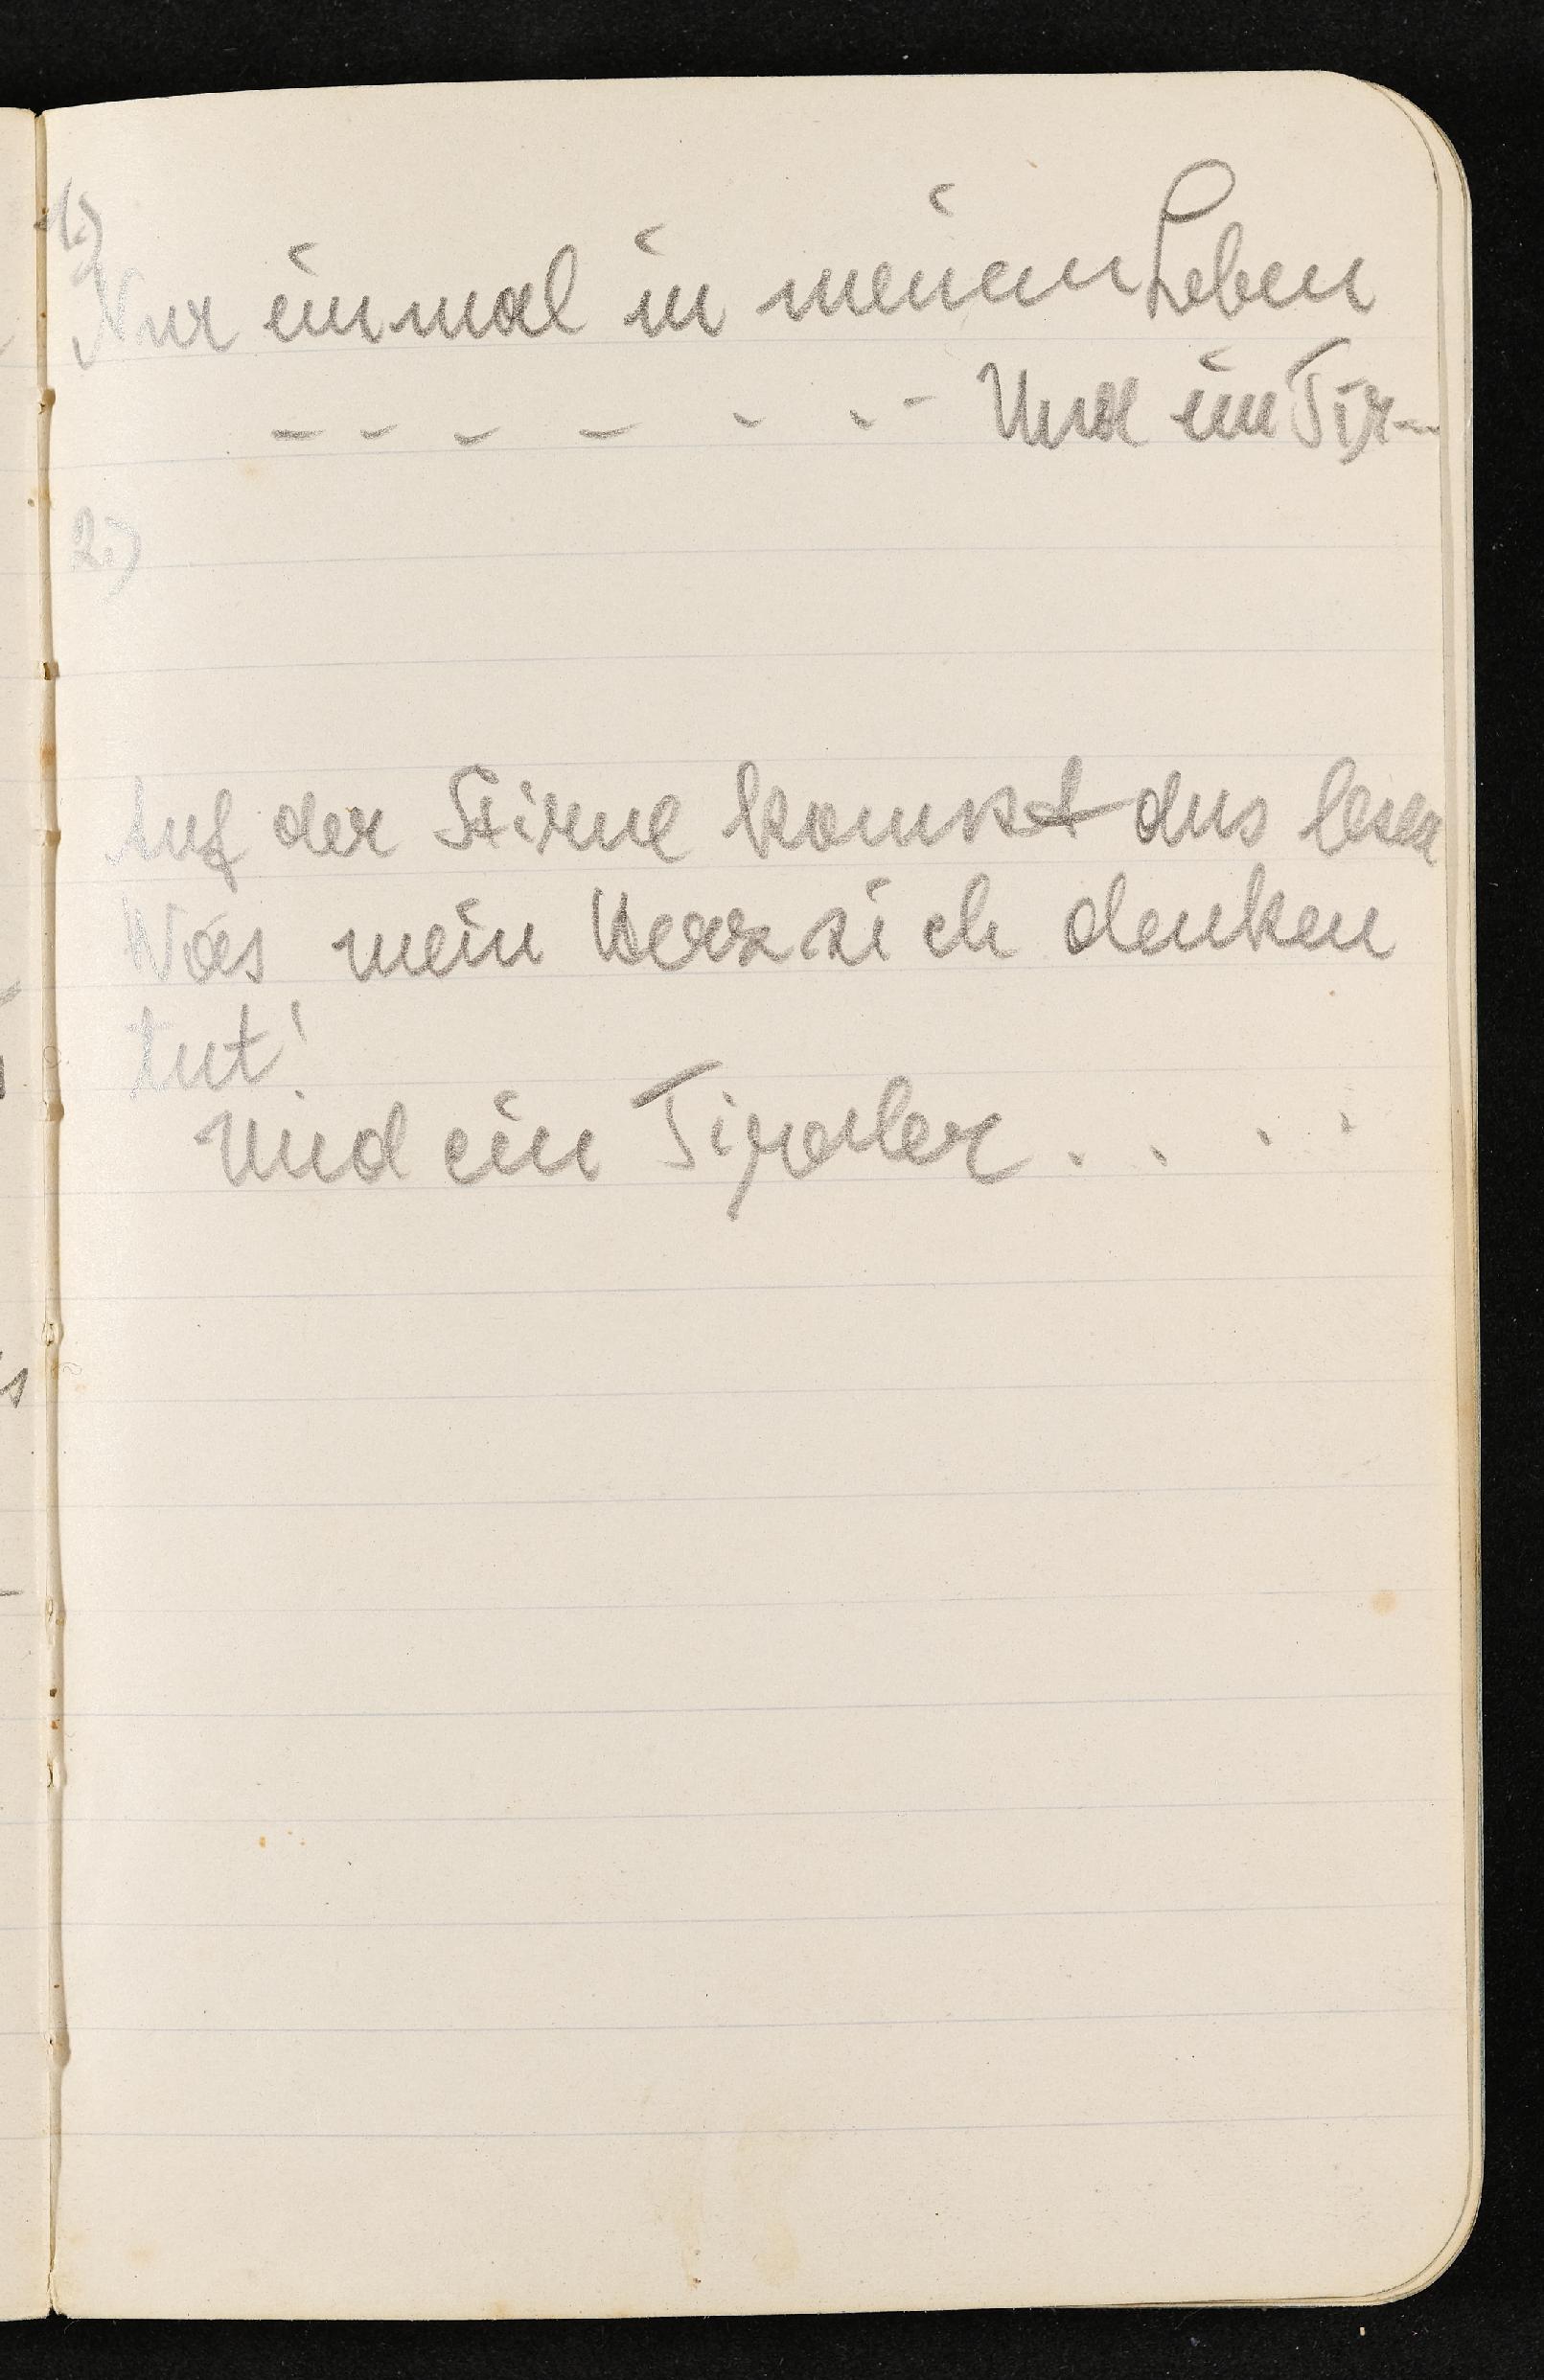 1.)
Nur einmal in meinem Leben
– – – – - . - Und ein Tir–
2.)
Auf der Stirne komst dus lesen
Was mein Herz sich denken
tut!
Und ein Tiroler . . . .